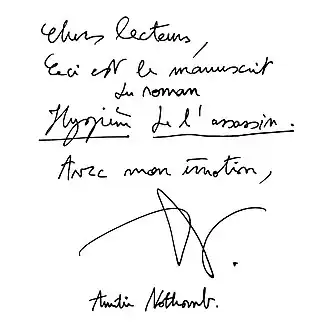 Chers lecteurs,
Ceci est le manuscrit
du roman
Hygiène de l'assassin.
Avec mon émotion,
Amélie Nothomb.